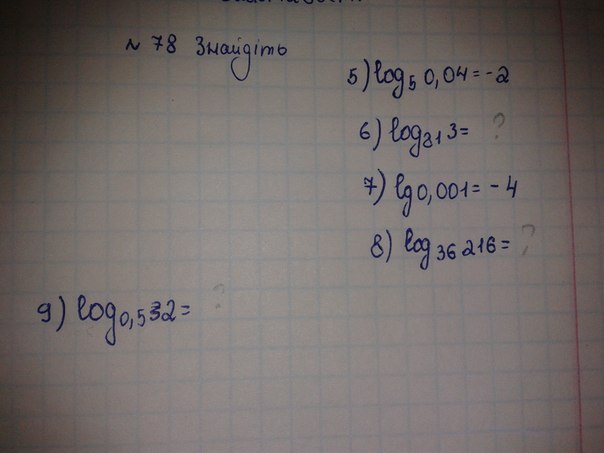 № 78 Знайдіть
5) log₅ 0,04 = -2
6) log₈₁ 3 = ?
7) lg 0,001 = -4
8) log₃₆ 216 = ?
9) log₀,₅ 32 = ?